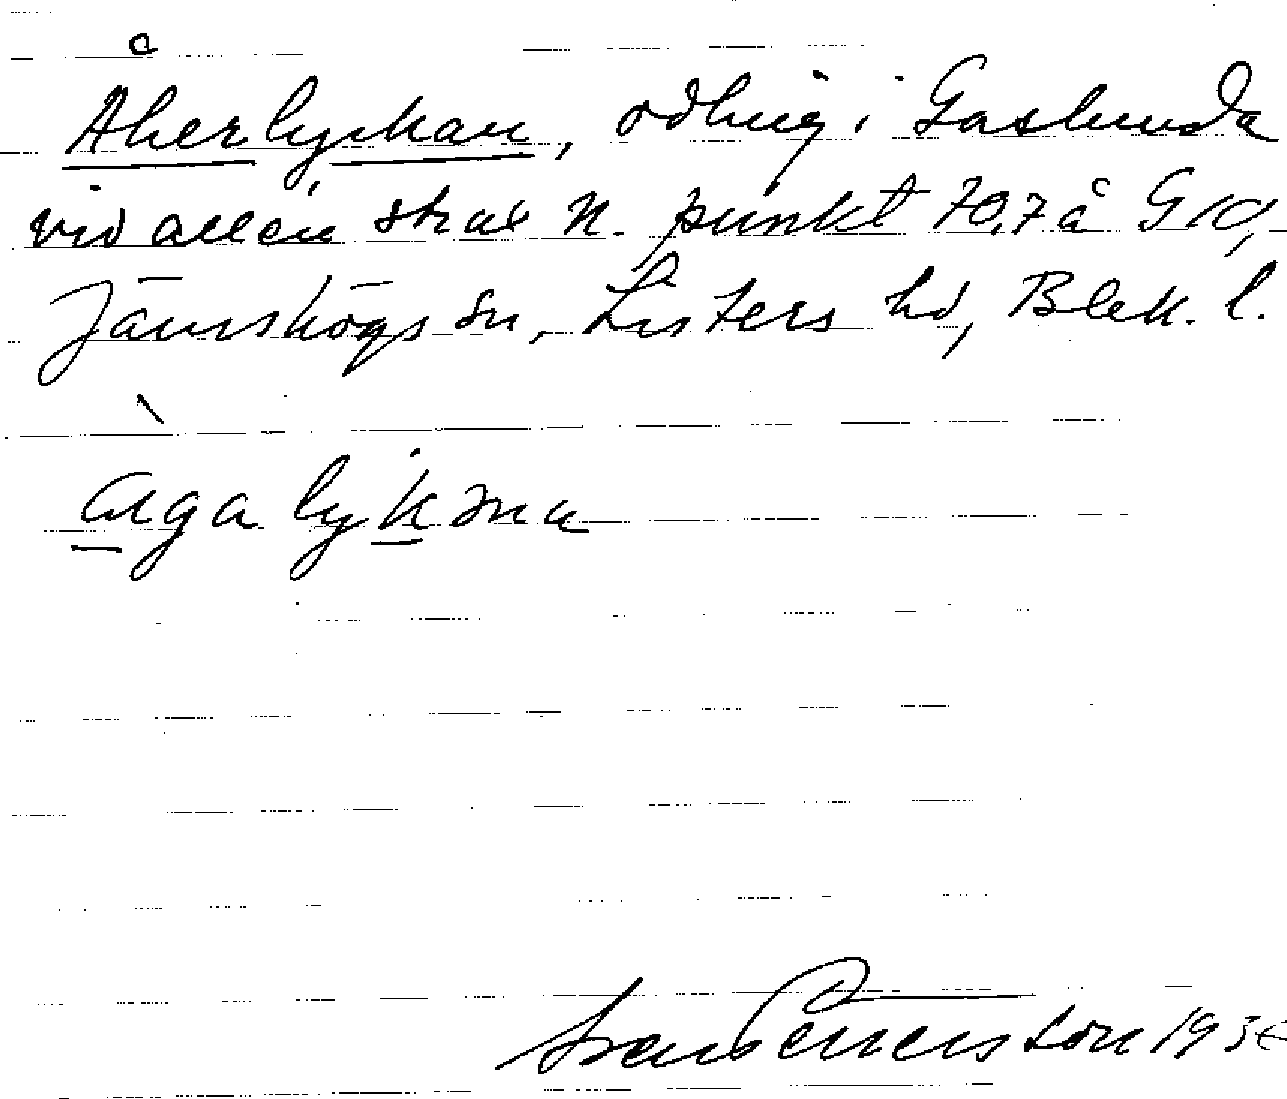 Åkerlyckan, odling i Gaslunda
vid allén strax N. punkt 70,7 å G10,
Jämshögs sn, Listers hd, Blek. l.
agalykəna
Sven Benson 193